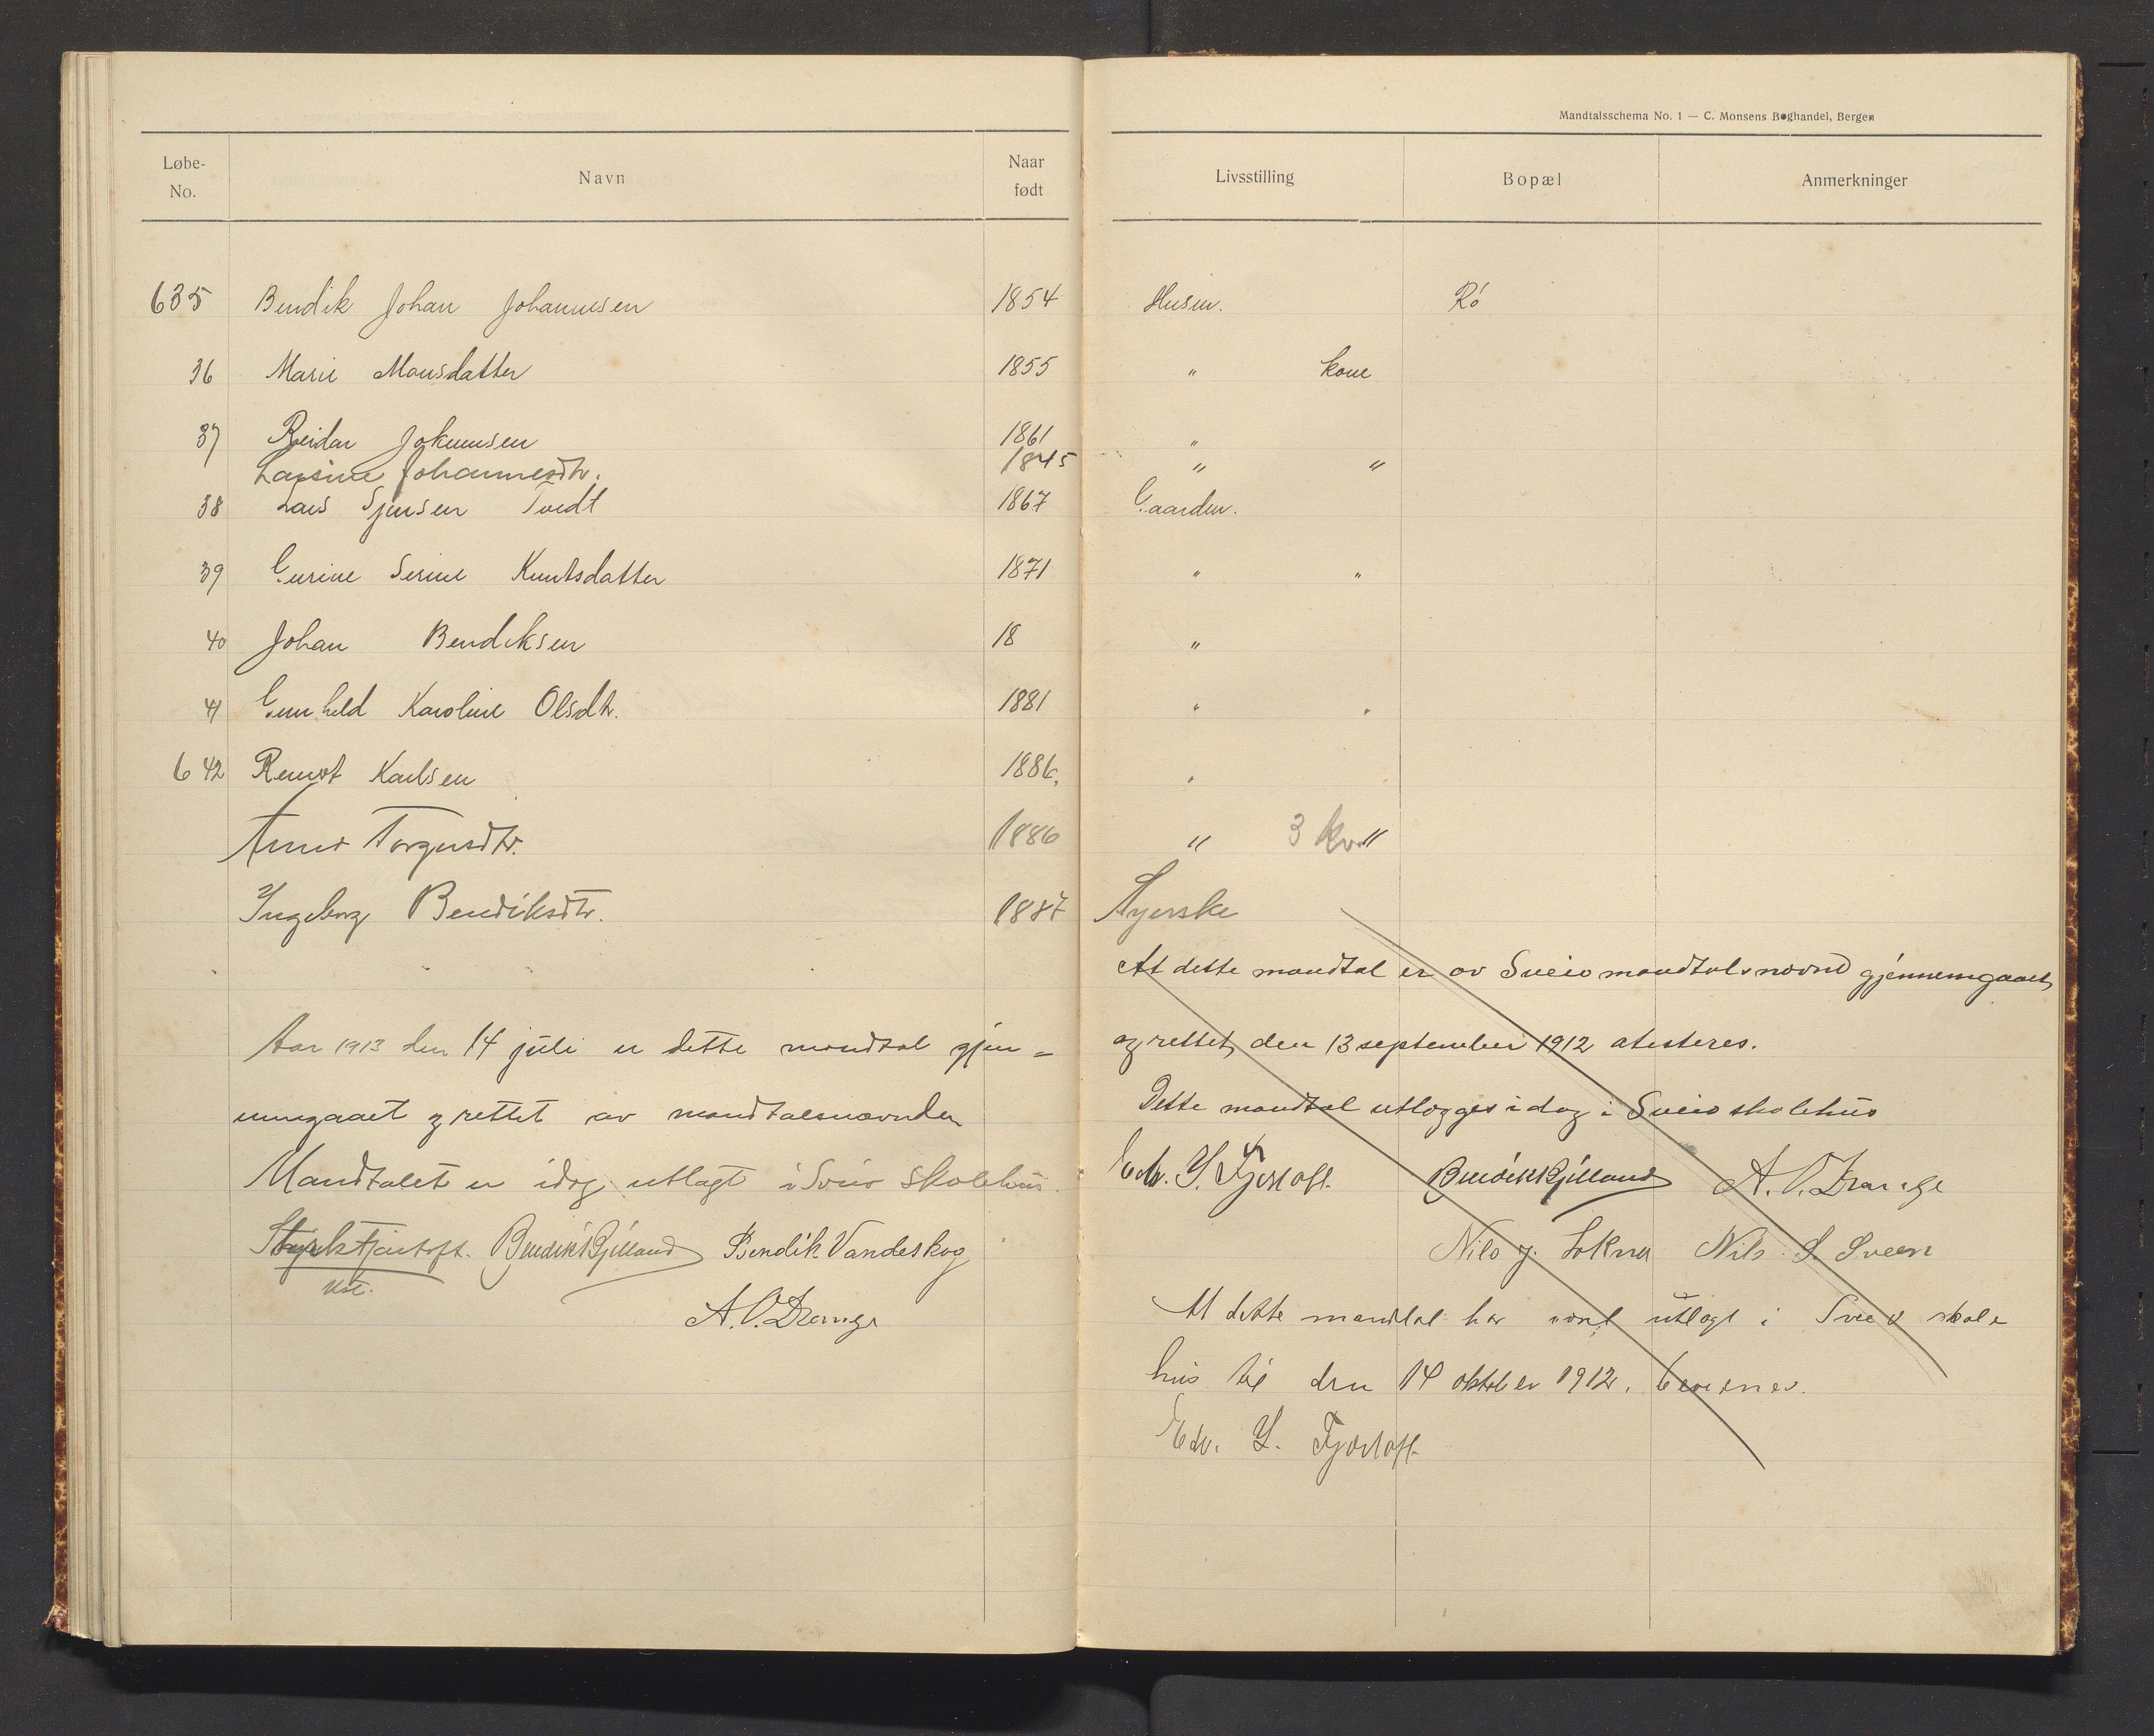 Mandtalsschema No. 1 — C. Monsens Boghandel, Bergen
Løbe-No. Navn Naar født Livsstilling Bopæl Anmerkninger
635 Bendik Johan Johannesen 1854 Husm. Rö
36 Marie Monsdatter 1855 " kone
37 Reidar Jokumsen 1861 "
Larsine Johannesdtr. 1845 " "
38 Lars Sjursen Tvedt 1867 Gaardm.
39 Gurine Serine Knutsdatter 1871 " "
40 Johan Bendiksen 18 "
41 Gunhild Karoline Olsdtr. 1881 " "
642 Karlsen 1886. "
Torgersdtr. 1886 " 3 kv. "
Ingeborg Bendiksdtr. 1887 Syerske
Aar 1913 den 14 juli er dette mandtal gjen=
nemgaaet og rettet av mandtalsnævnden
Mandtalet er idag utlagt i Sveio skolehus.
Styrk Fjortoft. Bendik Gjilland Bendik Vandeskog
A. O. Drange
At dette mandtal er av Sveio mandtalsnævnd gjennemgaaet
og rettet den 13 september 1912 atesteres.
Dette mandtal utlægges idag i Sveio skolehus
Edv. Y. Fjortoft. Bendik Gjilland A. O. Drange
Nils J. Lokna Nils S. Sveen
At dette mandtal har vært utlagt i Sveio skole
hus til den 14 oktober 1912, bevidnes.
Edv. Y. Fjortoft